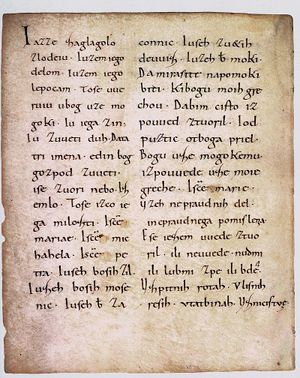 Iazze zaglagolo
zlodeiu. Iuzem iego
delom. Iuzem iego
lepocam. Tose uue
ruiu ubog uze mo
goki. Iu iega zin.
Iu zuueti duh. Data
tri imena. edin bog
gozpod zuueti.
ise zuori nebo. Iz
emlo. Tose izco ie
ga milosti. Isc͞e
mariae. Isc͞e mic
hahela. Isc͞e pe
tra. Iuseh bosih zil.
Iuzeh bosih mose
nic. Iuseh b͞ za
connic. Iuseh zuetih
deuuiz. Iuzeh b͞ moki.
Da mirasite napomoki
biti. Kibogu moih gre
chou. Dabim cisto iz
pouued ztuoril. Iod
puztic otboga priel.
Bogu uze mogokemu
izpouuede uze moie
greche. Isc͞e marie.
uzeh nepraudnih del.
inepraudnega pomislenia.
Ese iesem uuede ztuo
ril. ili neuuede. nudmi
ili lubmi zpe ili bde͞.
Uzpitnih rotah. Vlisnih
resih. Vtatbinah. Uznicistue